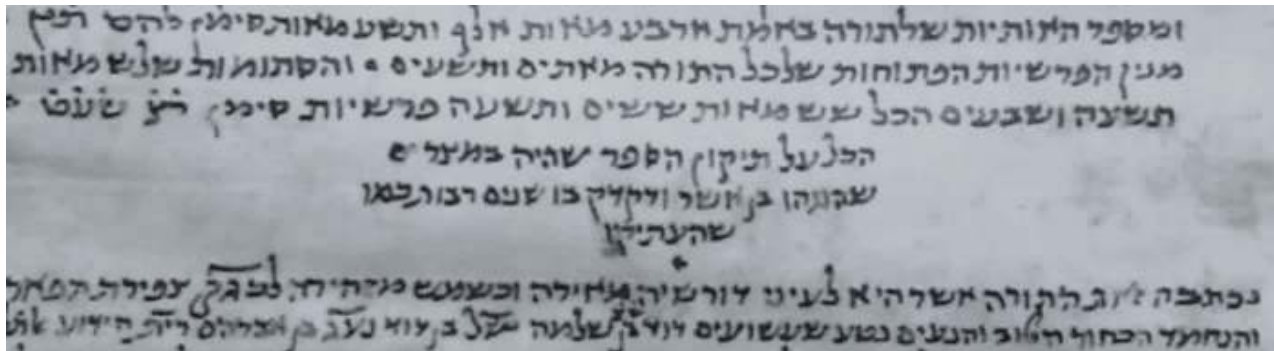 ומספר האותיות שלתורה באמת ארבע מאות אלף ותשע מאות סימן
מנין הפרשיות הפתוחות שלכל התורה מאתים ותשעים והסתומות שלש מאות
תשעה ושבעים הכל שש מאות ששים ותשעה פרשיות סימן רֹצֹ שֹעֹטֹ
הכל על תיקון הספר שהיה במצרים
שהגיהו בן אשר ודקדק בו שנים רבות כמו
שהעתיקו
נכתבה התורה אשר היא לעיני דורשיה מאירה וכשמש מזהירה צפירת תפאר
והנחמד הבחור הטוב והנעים נטע שעשועים דוד שלמה בן דוד בן אברהם הידוע